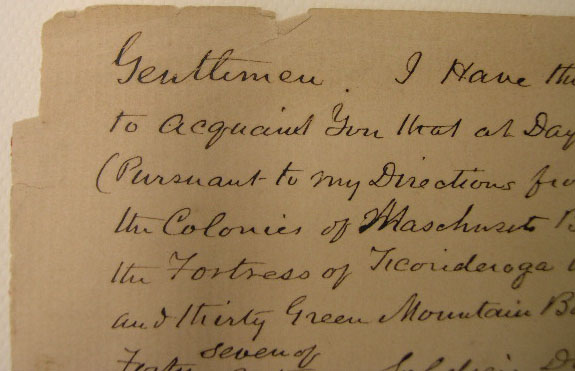 Gentlemen. I Have the
to acquaint You that at Day
(Pursuant to my Directions from
the Colonies of Maschusets
the Fortress of Ticonderoga
and thirty Green Mountain Bo
seven of
Forty Soldiers